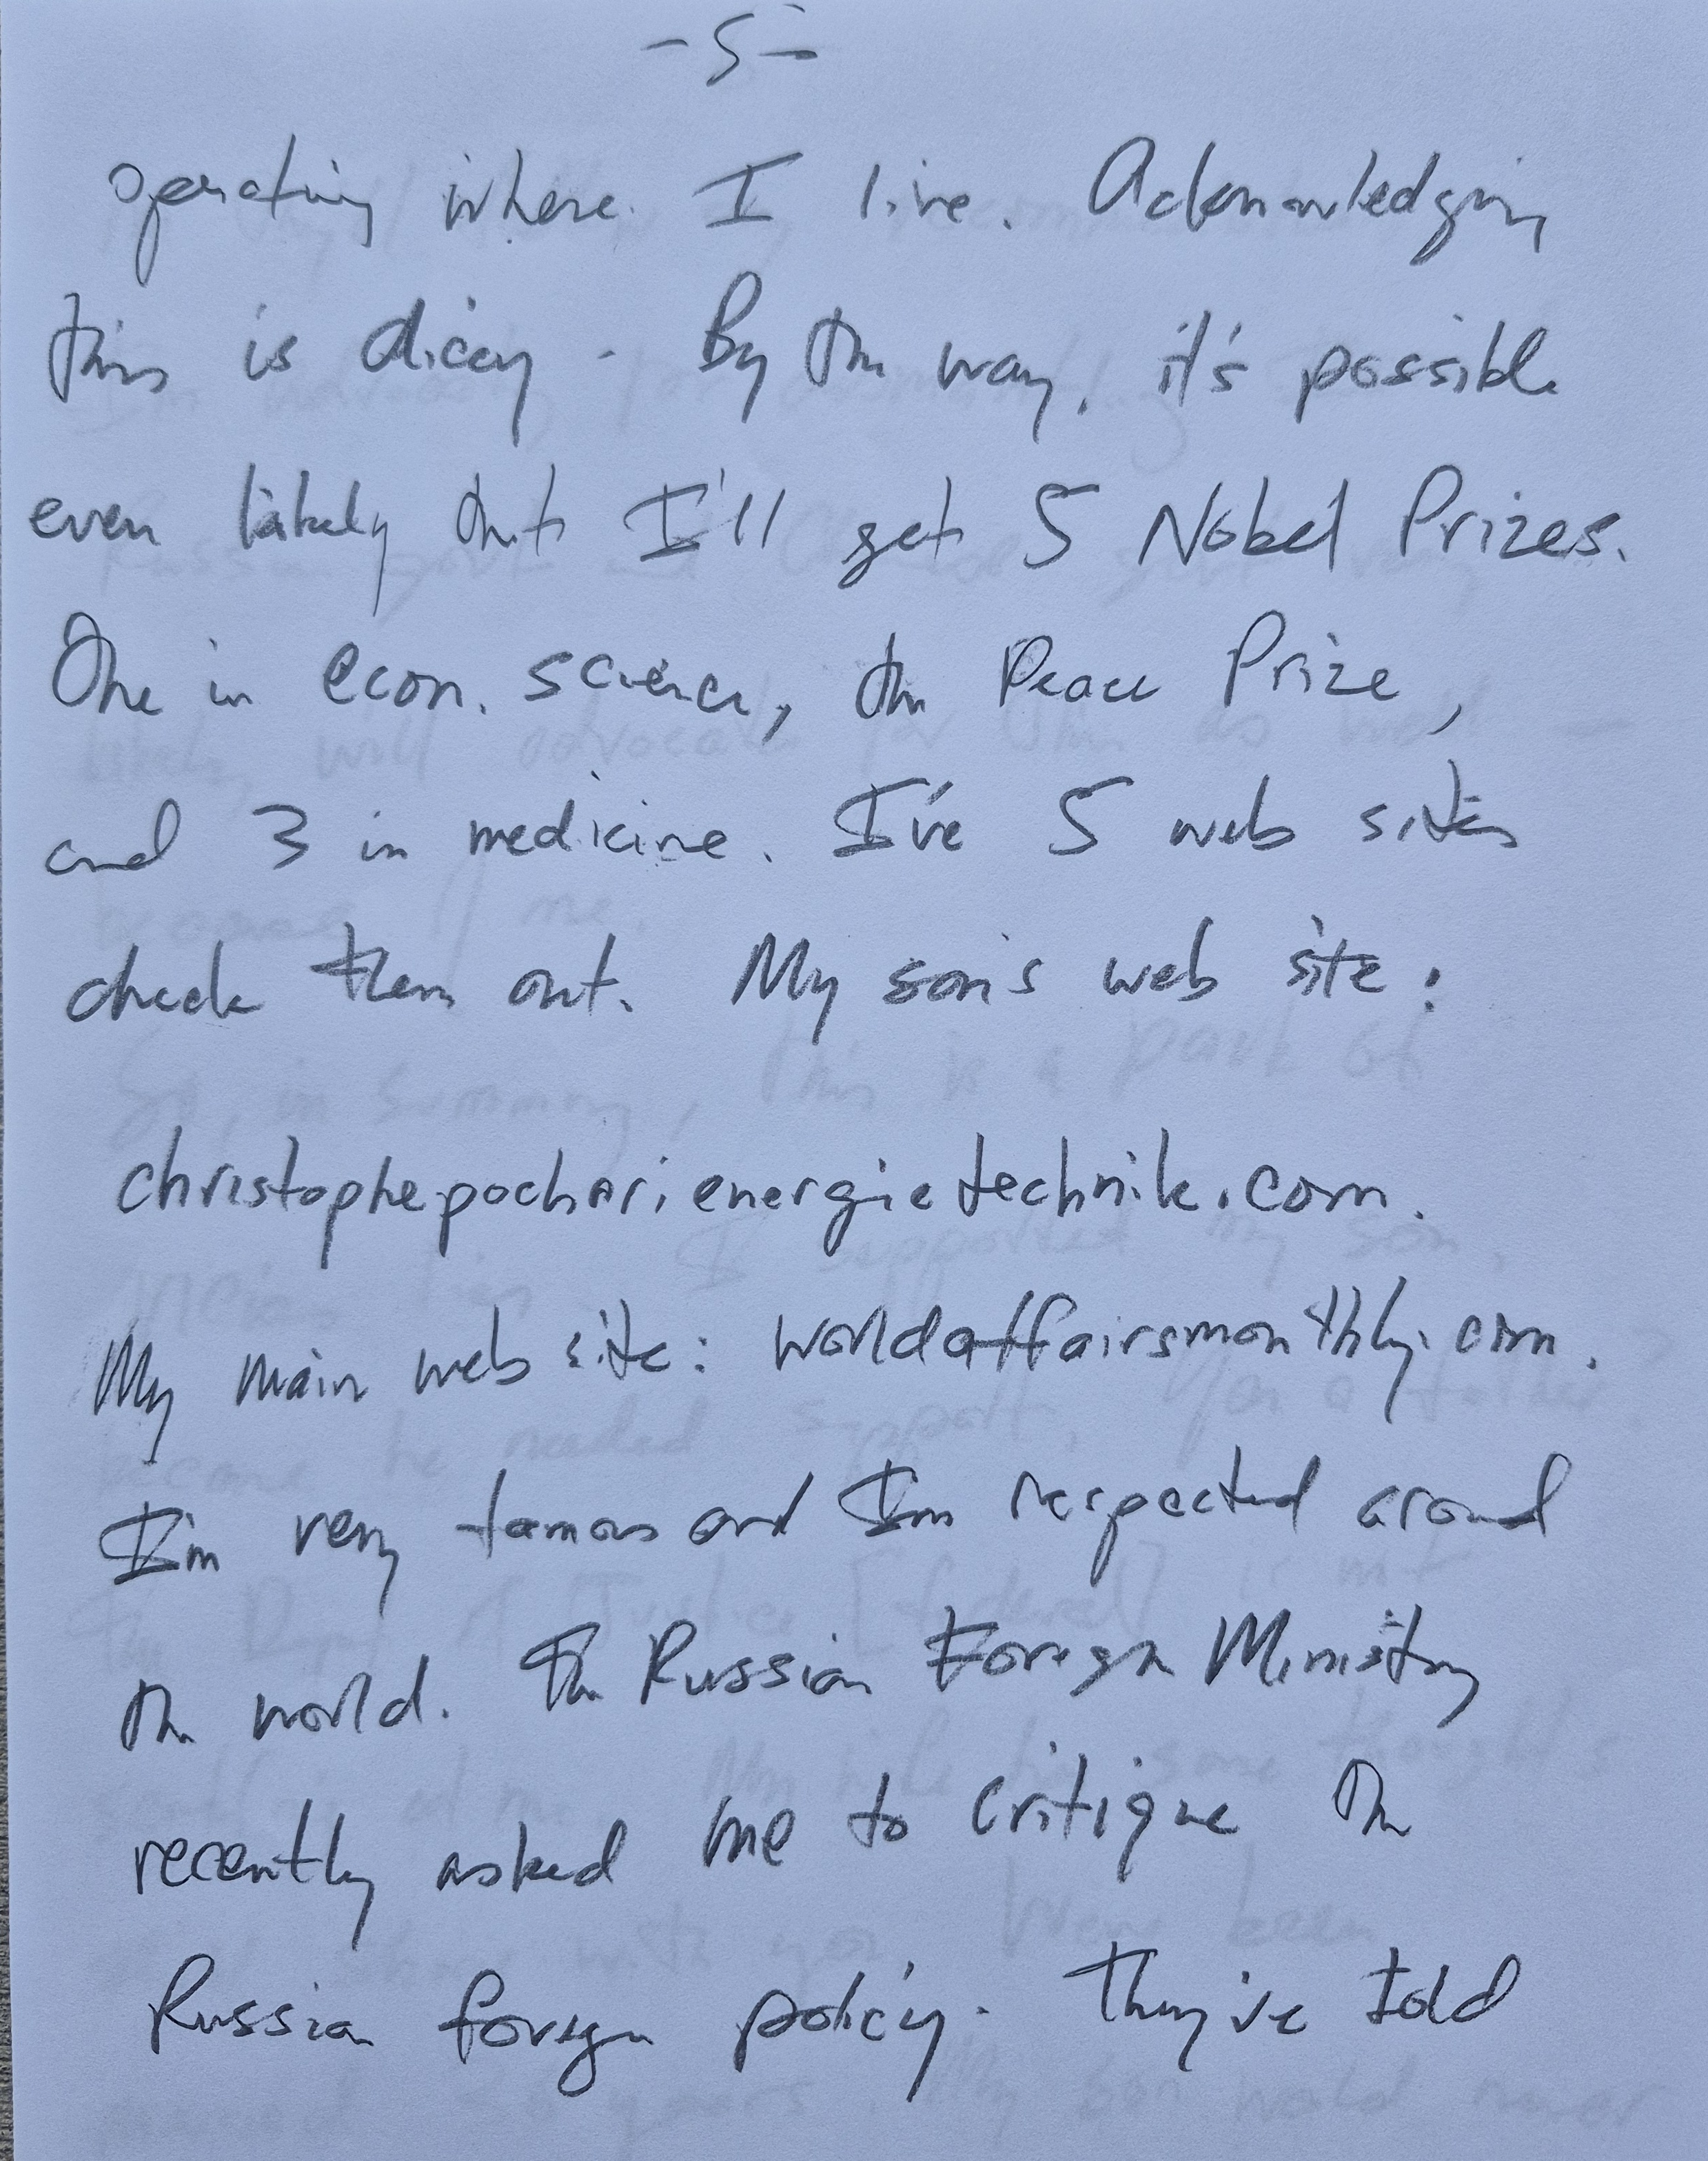 -5-
operating where I live. Acknowledging
this is dicey. By the way, it's possible
even likely that I'll get 5 Nobel Prizes.
One in econ. science, the Peace Prize,
and 3 in medicine. I've 5 web sites
check them out. My son's web site:
christophepochari energietechnik.com.
My main web site: worldaffairsmonthly.com.
I'm very famous and I'm respected around
the world. The Russian Foreign Ministry
recently asked me to critique the
Russian foreign policy. They've told